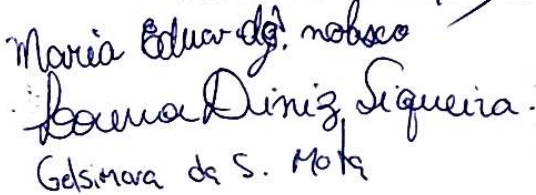 Maria Eduarda g. nolasco
Diniz Siqueira.
Gelsimara da S. Mota